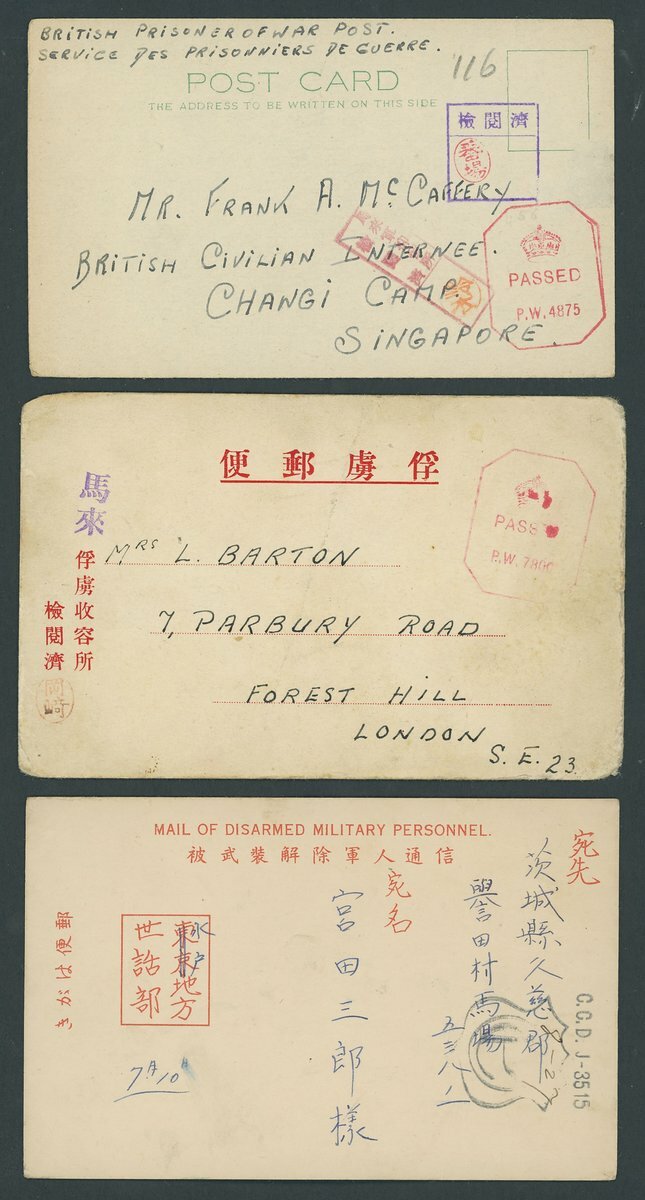 BRITISH PRISONER OF WAR POST.
SERVICE DES PRISONNIERS DE GUERRE.
116
POST CARD
THE ADDRESS TO BE WRITTEN ON THIS SIDE
檢閱濟
MR. FRANK A. McCAFFERY
BRITISH CIVILIAN INTERNEE.
CHANGI CAMP.
SINGAPORE.
PASSED
P.W. 4875
便郵虜俘
馬來
俘虜收容所
檢閱濟
MRS L. BARTON
7, PARBURY ROAD
FOREST HILL
LONDON
S. E. 23.
PASS
P.W.
MAIL OF DISARMED MILITARY PERSONNEL.
被武裝解除軍人通信
宛先
茨城縣久慈郡
譽田村馬場
五三八八
宛名
宮田三郎様
水戸
東京地方
世話部
きがは便郵
7月10日
C.C.D. J-3515